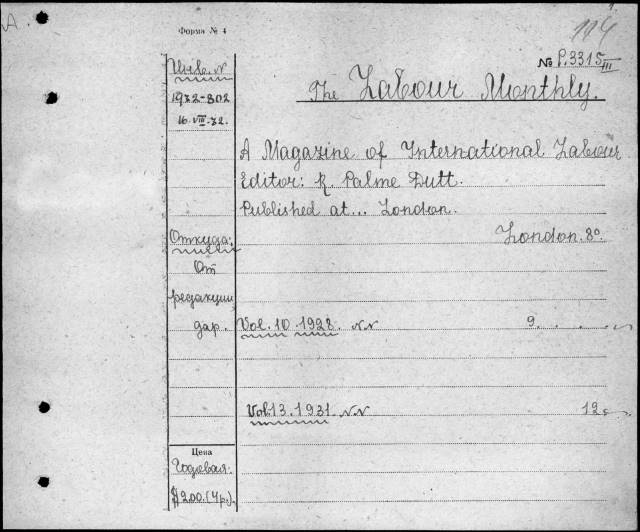 Форма № 4
114
Инв. N
№ P.3315/III
1932-302
16.VIII-32.
The Labour Monthly.
A Magazine of International Labour
Editor: R. Palme Dutt.
Published at... London.
Откуда:
London. 8°.
От
редакции
дар.
Vol. 10. 1928. NN 9.
Vol. 13. 1931. NN 12
Цена
Годовая.
$2.00. (4р.).